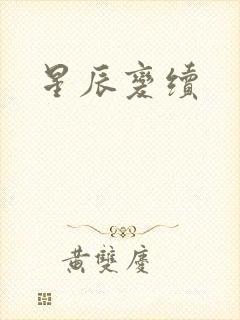 星辰變續
黃雙慶